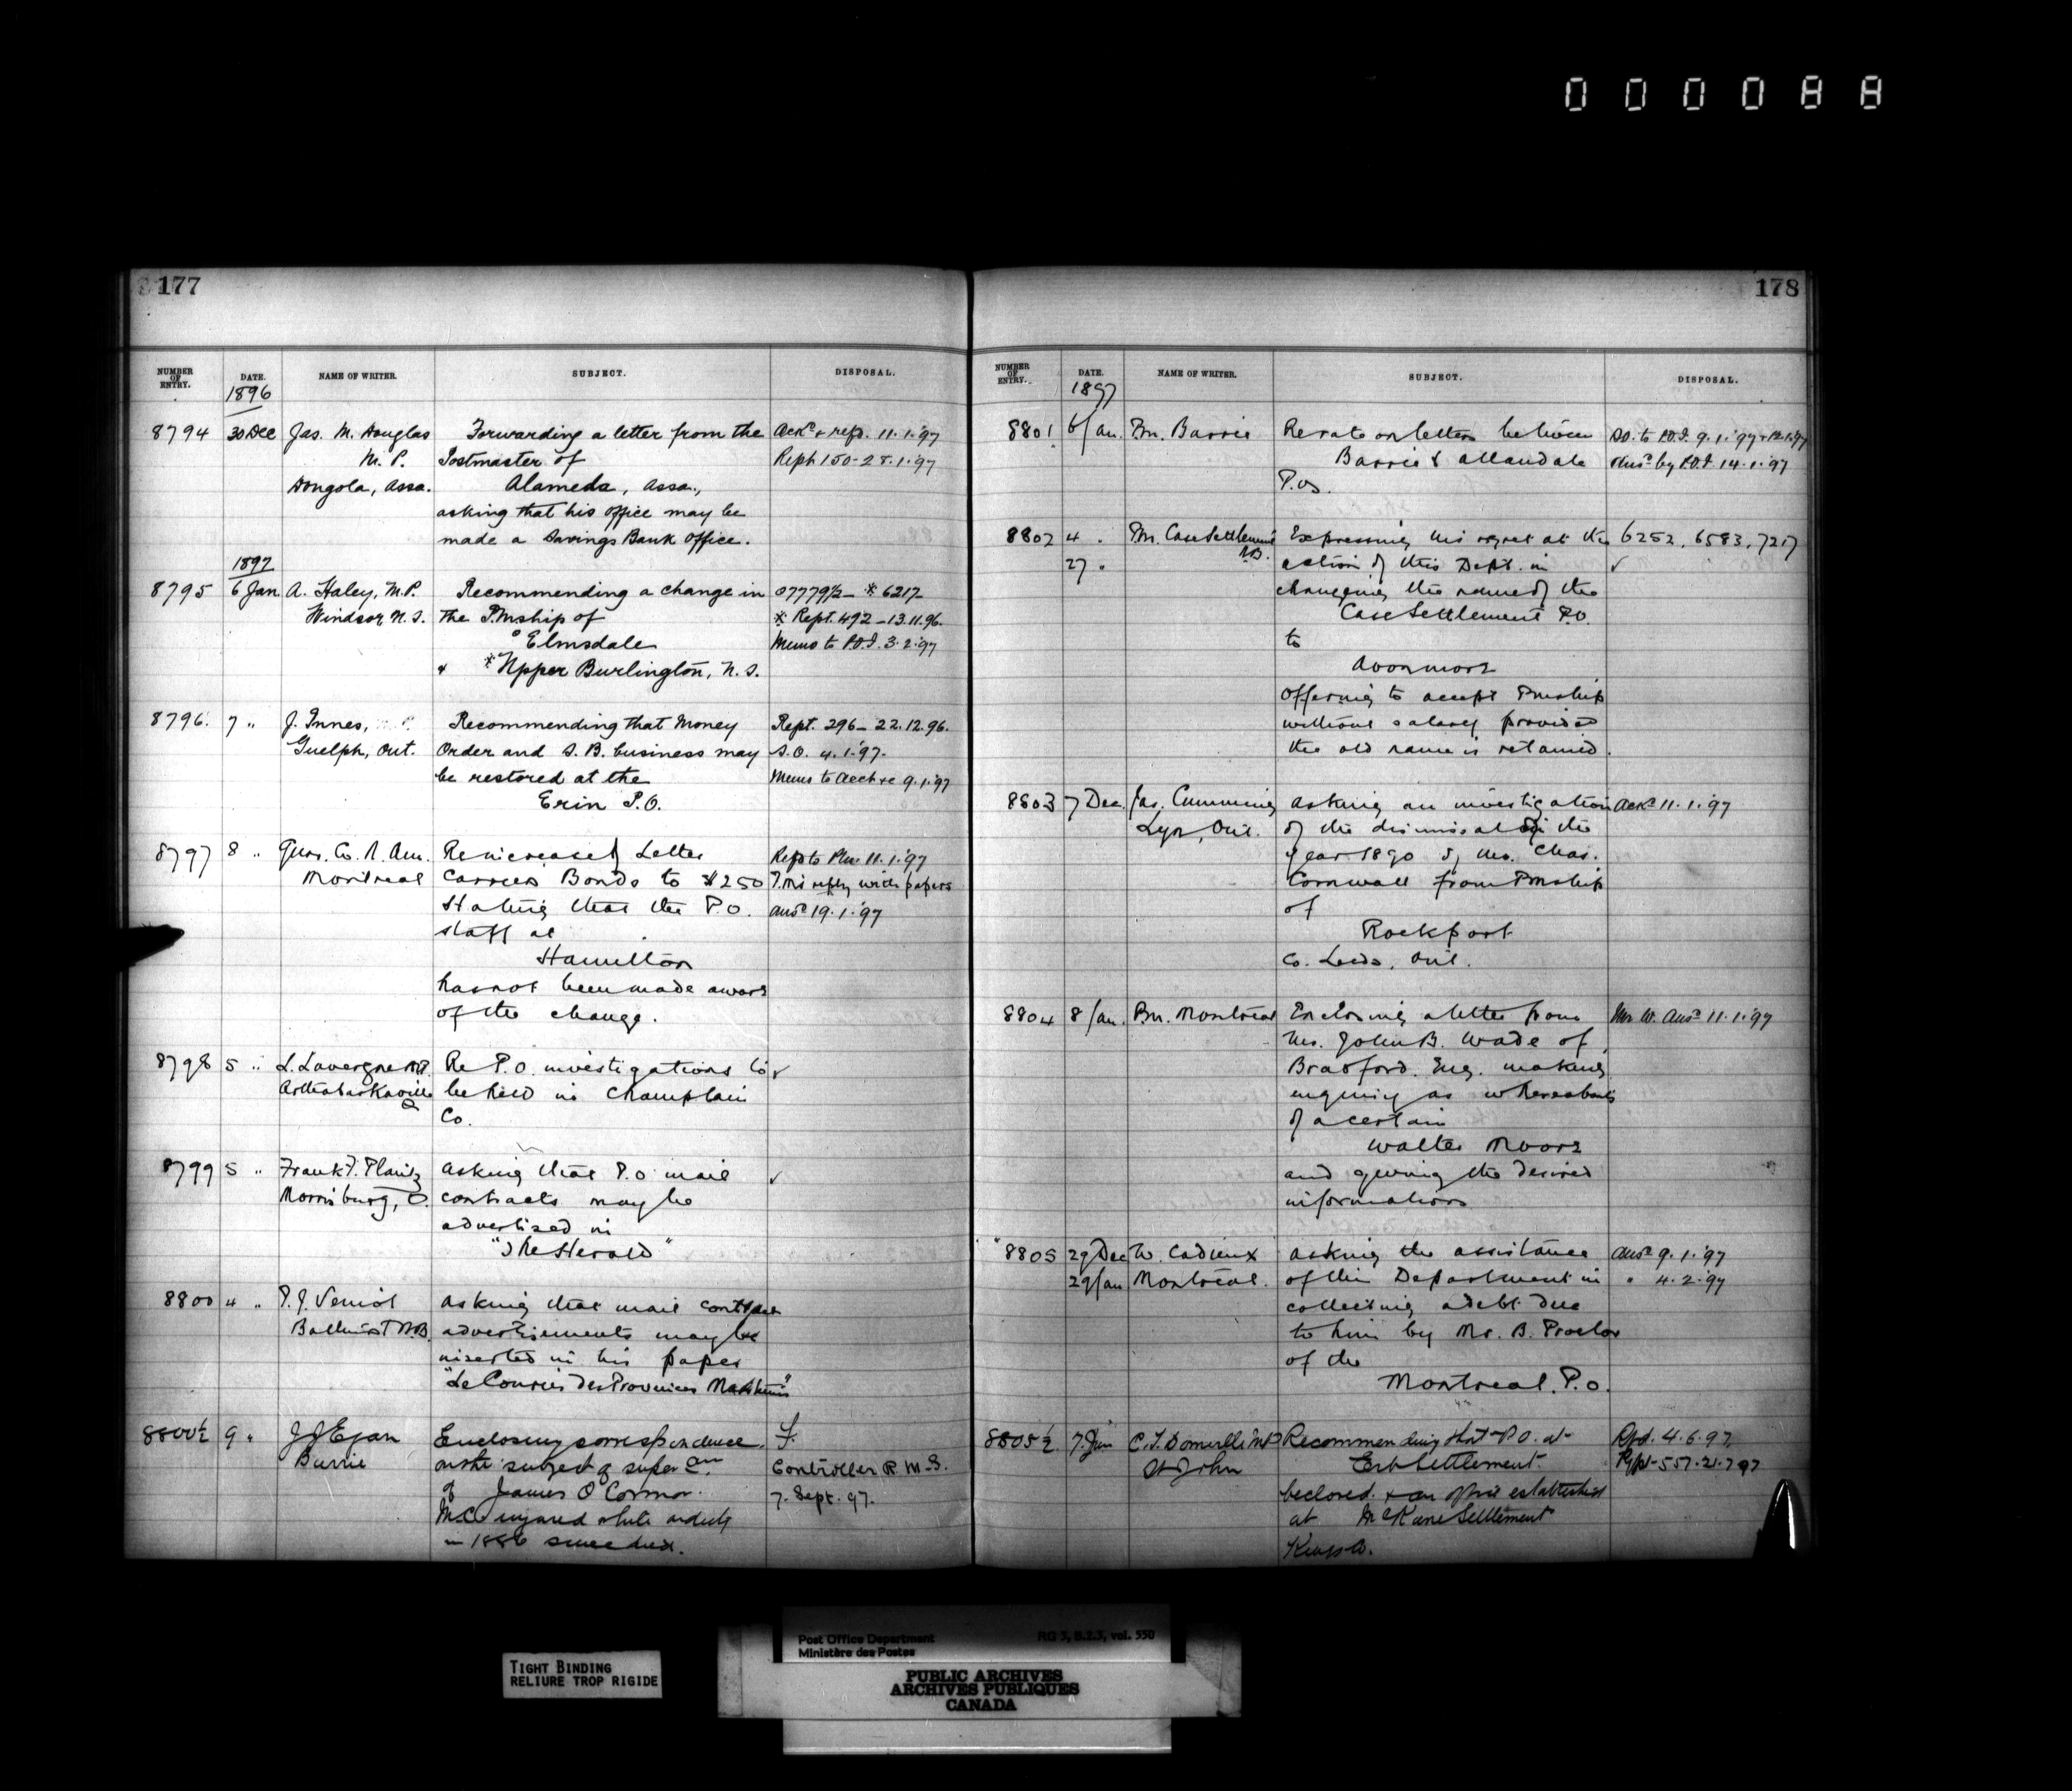 000088
177
NUMBER OF ENTRY. DATE. NAME OF WRITER. SUBJECT. DISPOSAL.
1896
8794 30 Dec Jas. M. Douglas Forwarding a letter from the Ackd & refd. 11.1.'97
M. P. Postmaster of Rept 150-28.1.'97
Dongola, Assa. Alameda, Assa.,
asking that his office may be
made a Savings Bank Office.
1897
8795 6 Jan. A. Haley, M.P. Recommending a change in 07779½ - * 6217-
Windsor N. S. the P.Mship of * Rept. 492-13.11.96.
° Elmsdale Memo to P.O.I. 3.2.'97
& * Upper Burlington, N. S.
8796. 7 " J. Innes, Recommending that Money Rept. 296-22.12.96.
Guelph, Ont. Order and S. B. business may S.O. 4.1.'97.
be restored at the Memo to Acct &c 9.1.'97
Erin P.O.
8797 8 " Guar. Co. N. Am. Re increase of Letter Refd to Pm 11.1.'97
Montreal Carriers Bonds to $250 P.M's reply with papers
Stating that the P.O. ansd 19.1.'97
staff at
Hamilton
has not been made aware
of the change.
8798 5 " L. Lavergne M.P. Re P.O. investigations to ✓
Arthabaskaville Q be held in Champlain
Co.
8799 5 " Frank F. Plantz asking that P.O. mail ✓
Morrisburg, O. contracts may be
advertised in
"The Herald"
8800 4 " P. J. Veniot asking that mail contract
Bathurst N.B. advertisements may be
inserted in his paper
"Le Courrier des Provinces Maritimes"
8800½ 9 " J J Egan Enclosing correspondence F.
Barrie on the subject of superan. Controller R. M. S.
of James O'Connor. 7. Sept. 97.
M.C. injured while on duty
in 1886 since died.
178
NUMBER OF ENTRY. DATE. NAME OF WRITER. SUBJECT. DISPOSAL.
1897
8801 6 Jan. Pm. Barrie Re rate on letters between S.O. to P.O.I. 9.1.'97 & 12.1.97
Barrie & Allandale Ansd by P.O.I. 14.1.'97
P.Os.
8802 4 " Pm. Case Settlement N.B. Expressing his regret at the 6252, 6583, 7217
27 " action of this Dept. in ✓
changing the name of the
Case Settlement P.O.
to
Avonmore
offering to accept Pmship
without salary provided
the old name is retained.
8803 7 Dec. Jas. Cumming asking an investigation Ackd 11.1.'97
Lyn, Ont. of the dismissal in the
year 1890 of Mr. Chas.
Cornwall from Pmship
of
Rockport
Co. Leeds, Ont.
8804 8 Jan. Pm. Montreal Enclosing a letter from Mr W. Ansd 11.1.'97
Mr. John B. Wade of
Bradford. Eng. making
enquiry as whereabouts
of a certain
Walter Moore
and giving the desired
information
8805 29 Dec W. Cadieux asking the assistance Ansd 9.1.'97
29 Jan Montreal. of this Department in " 4.2.'97
collecting a debt due
to him by Mr. B. Proctor
of the
Montreal. P.O.
8805½ 7. Jun C. J. Domville MP Recommending that P.O. at Rfd. 4.6.97.
St John Erb Settlement Rpt-557.21.7.97
be closed & an office established
at McKane Settlement
Kings Co.
TIGHT BINDING
RELIURE TROP RIGIDE
Post Office Department RG 3, B.2.3, vol. 550
Ministère des Postes
PUBLIC ARCHIVES
ARCHIVES PUBLIQUES
CANADA